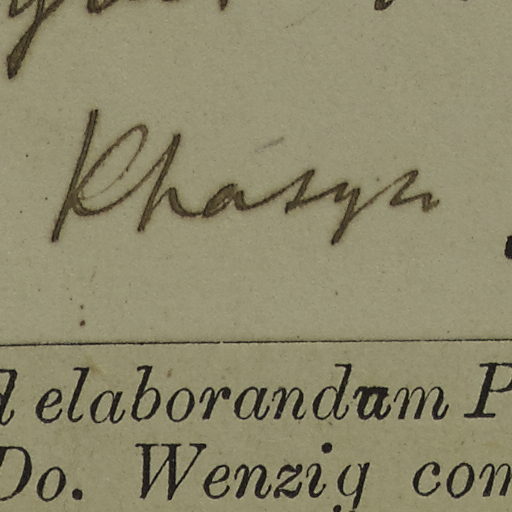 Khasya
d elaborandum P
Do. Wenzig com